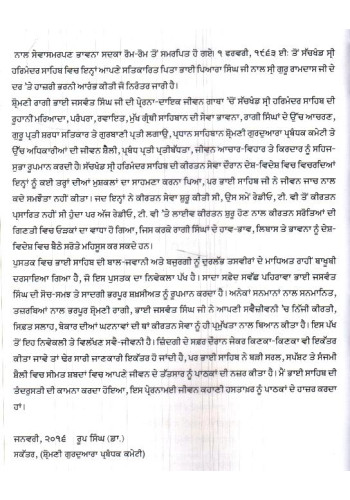 ਨਾਲ ਸੇਵਾਸਮਰਪਣ ਭਾਵਨਾ ਸਦਕਾ ਰੋਮ-ਰੋਮ ਤੋਂ ਸਮਰਪਿਤ ਹੋ ਗਏ। ੧ ਫਰਵਰੀ, ੧੯੬੩ ਈ: ਤੋਂ ਸੱਚਖੰਡ ਸ੍ਰੀ
ਹਰਿਮੰਦਰ ਸਾਹਿਬ ਵਿਚ ਇਨ੍ਹਾਂ ਆਪਣੇ ਸਤਿਕਾਰਿਤ ਪਿਤਾ ਭਾਈ ਪਿਆਰਾ ਸਿੰਘ ਜੀ ਨਾਲ ਸ੍ਰੀ ਗੁਰੂ ਰਾਮਦਾਸ ਜੀ ਦੇ
ਦਰ 'ਤੇ ਹਾਜ਼ਰੀ ਭਰਨੀ ਆਰੰਭ ਕੀਤੀ ਜੋ ਨਿਰੰਤਰ ਜਾਰੀ ਹੈ।
ਸ਼੍ਰੋਮਣੀ ਰਾਗੀ ਭਾਈ ਜਸਵੰਤ ਸਿੰਘ ਜੀ ਦੀ ਪ੍ਰੇਰਨਾ-ਦਾਇਕ ਜੀਵਨ ਗਾਥਾ 'ਚੋਂ ਸੱਚਖੰਡ ਸ੍ਰੀ ਹਰਿਮੰਦਰ ਸਾਹਿਬ ਦੀ
ਰੂਹਾਨੀ ਮਰਿਆਦਾ, ਪਰੰਪਰਾ, ਰਵਾਇਤ, ਮੁੱਖ ਗ੍ਰੰਥੀ ਸਾਹਿਬਾਨ ਦੀ ਸੇਵਾ ਭਾਵਨਾ, ਰਾਗੀ ਸਿੰਘਾਂ ਦੇ ਉੱਚ ਆਚਰਣ,
ਗੁਰੂ ਪ੍ਰਤੀ ਸ਼ਰਧਾ ਸਤਿਕਾਰ ਤੇ ਗੁਰਬਾਣੀ ਪ੍ਰਤੀ ਲਗਾਉ, ਪ੍ਰਧਾਨ ਸਾਹਿਬਾਨ ਸ਼੍ਰੋਮਣੀ ਗੁਰਦੁਆਰਾ ਪ੍ਰਬੰਧਕ ਕਮੇਟੀ ਤੇ
ਉੱਚ ਅਧਿਕਾਰੀਆਂ ਦੀ ਜੀਵਨ ਸ਼ੈਲੀ, ਪ੍ਰਬੰਧ ਪ੍ਰਤੀ ਪ੍ਰਤੀਬੱਧਤਾ, ਜੀਵਨ ਆਚਾਰ-ਵਿਹਾਰ ਤੇ ਕਿਰਦਾਰ ਨੂੰ ਸਹਿਜ-
ਸੁਭਾ ਰੂਪਮਾਨ ਕਰਦੀ ਹੈ। ਸੱਚਖੰਡ ਸ੍ਰੀ ਹਰਿਮੰਦਰ ਸਾਹਿਬ ਦੀ ਕੀਰਤਨ ਸੇਵਾ ਦੌਰਾਨ ਦੇਸ਼-ਵਿਦੇਸ਼ ਵਿਚ ਵਿਚਰਦਿਆਂ
ਇਨ੍ਹਾਂ ਨੂੰ ਕਈ ਤਰ੍ਹਾਂ ਦੀਆਂ ਮੁਸ਼ਕਲਾਂ ਦਾ ਸਾਹਮਣਾ ਕਰਨਾ ਪਿਆ, ਪਰ ਭਾਈ ਸਾਹਿਬ ਜੀ ਨੇ ਜੀਵਨ ਜਾਚ ਨਾਲ
ਕਦੇ ਸਮਝੌਤਾ ਨਹੀਂ ਕੀਤਾ। ਜਦ ਇਨ੍ਹਾਂ ਨੇ ਕੀਰਤਨ ਸੇਵਾ ਸ਼ੁਰੂ ਕੀਤੀ ਸੀ, ਉਸ ਸਮੇਂ ਰੇਡੀਓ, ਟੀ. ਵੀ ਤੋਂ ਕੀਰਤਨ
ਪ੍ਰਸਾਰਿਤ ਨਹੀਂ ਸੀ ਹੁੰਦਾ ਪਰ ਅੱਜ ਰੇਡੀਓ, ਟੀ. ਵੀ 'ਤੇ ਲਾਈਵ ਕੀਰਤਨ ਸ਼ੁਰੂ ਹੋਣ ਨਾਲ ਕੀਰਤਨ ਸਰੋਤਿਆਂ ਦੀ
ਗਿਣਤੀ ਵਿਚ ਓੜਕਾਂ ਦਾ ਵਾਧਾ ਹੋ ਗਿਆ, ਜਿਸ ਕਰਕੇ ਰਾਗੀ ਸਿੰਘਾਂ ਦੇ ਹਾਵ-ਭਾਵ, ਲਿਬਾਸ ਤੇ ਭਾਵਨਾ ਨੂੰ ਦੇਸ਼-
ਵਿਦੇਸ਼ ਵਿਚ ਬੈਠੇ ਸਰੋਤੇ ਮਹਿਸੂਸ ਕਰ ਸਕਦੇ ਹਨ।
ਪੁਸਤਕ ਵਿਚ ਭਾਈ ਸਾਹਿਬ ਦੀ ਬਾਲ-ਜਵਾਨੀ ਅਤੇ ਬਜ਼ੁਰਗੀ ਨੂੰ ਦੁਰਲੱਭ ਤਸਵੀਰਾਂ ਦੇ ਮਾਧਿਅਤ ਰਾਹੀਂ ਬਾਖੂਬੀ
ਦਰਸਾਇਆ ਗਿਆ ਹੈ, ਜੋ ਇਸ ਪੁਸਤਕ ਦਾ ਨਿਵੇਕਲਾ ਪੱਖ ਹੈ। ਸਾਦਾ ਸਫ਼ੈਦ ਸਵੱਛ ਪਹਿਰਾਵਾ ਭਾਈ ਜਸਵੰਤ
ਸਿੰਘ ਦੀ ਸੋਚ-ਸਮਝ ਤੇ ਸਾਦਗੀ ਭਰਪੂਰ ਸ਼ਖ਼ਸੀਅਤ ਨੂੰ ਰੂਪਮਾਨ ਕਰਦਾ ਹੈ। ਅਨੇਕਾਂ ਸਨਮਾਨਾਂ ਨਾਲ ਸਨਮਾਨਿਤ,
ਤਜ਼ਰਬਿਆਂ ਨਾਲ ਭਰਪੂਰ ਸ਼੍ਰੋਮਣੀ ਰਾਗੀ, ਭਾਈ ਜਸਵੰਤ ਸਿੰਘ ਜੀ ਨੇ ਆਪਣੀ ਸਵੈਜੀਵਨੀ 'ਚ ਨਿੱਜੀ ਕੀਰਤੀ,
ਸਿਫ਼ਤ ਸਲਾਹ, ਬੇਕਾਰ ਦੀਆਂ ਘਟਨਾਵਾਂ ਦੀ ਥਾਂ ਕੀਰਤਨ ਸੇਵਾ ਨੂੰ ਹੀ ਪ੍ਰਮੁੱਖਤਾ ਨਾਲ ਬਿਆਨ ਕੀਤਾ ਹੈ। ਇਸ ਪੱਖ
ਤੋਂ ਇਹ ਨਿਵੇਕਲੀ ਤੇ ਵਿਲੱਖਣ ਸਵੈ-ਜੀਵਨੀ ਹੈ। ਜ਼ਿੰਦਗੀ ਦੇ ਸਫ਼ਰ ਦੌਰਾਨ ਜੇਕਰ ਕਿਣਕਾ-ਕਿਣਕਾ ਵੀ ਇਕੱਤਰ
ਕੀਤਾ ਜਾਵੇ ਤਾਂ ਢੇਰ ਸਾਰੀ ਜਾਣਕਾਰੀ ਇਕੱਤਰ ਹੋ ਜਾਂਦੀ ਹੈ, ਪਰ ਭਾਈ ਸਾਹਿਬ ਨੇ ਬੜੀ ਸਰਲ, ਸਪੱਸ਼ਟ ਤੇ ਸੰਜਮੀ
ਸ਼ੈਲੀ ਵਿਚ ਸੀਮਤ ਸ਼ਬਦਾਂ ਵਿਚ ਆਪਣੇ ਜੀਵਨ ਦੇ ਤੱਤਸਾਰ ਨੂੰ ਪਾਠਕਾਂ ਦੀ ਨਜ਼ਰ ਕੀਤਾ ਹੈ। ਮੈਂ ਭਾਈ ਸਾਹਿਬ ਦੀ
ਤੰਦਰੁਸਤੀ ਦੀ ਕਾਮਨਾ ਕਰਦਾ ਹੋਇਆ, ਇਸ ਪ੍ਰੇਰਨਾਮਈ ਜੀਵਨ ਕਹਾਣੀ ਹਸਤਾਖ਼ਰ ਨੂੰ ਪਾਠਕਾਂ ਦੇ ਹਾਜ਼ਰ ਕਰਦਾ
ਹਾਂ।
ਜਨਵਰੀ, ੨੦੧੬ ਰੂਪ ਸਿੰਘ (ਡਾ.)
ਸਕੱਤਰ, (ਸ਼੍ਰੋਮਣੀ ਗੁਰਦੁਆਰਾ ਪ੍ਰਬੰਧਕ ਕਮੇਟੀ)